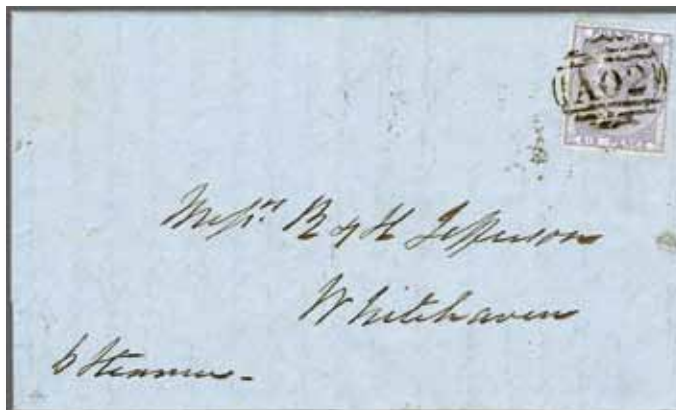 A02
SIX PENCE
Messrs R & H Jefferson
Whitehaven
p Steamer